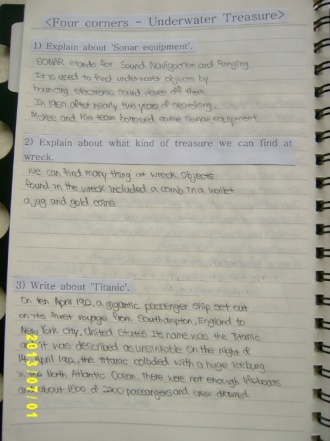 <Four corners - Underwater Treasure>
1) Explain about 'Sonar equipment'.
SONAR stands for Sound Navigation and Ranging
It is used to find underwater objects by
bouncing electronic sound waves off them.
In after nearly two years of searching.
and his team borrowed some sonar equipment
2) Explain about what kind of treasure we can find at
wreck.
We can find many thing at wreck. Objects
found in the wreck included a comb in a wallet
a jug and gold coins
3) Write about 'Titanic'.
On ten April 1912, a gigantic passenger ship set out
on its first voyage from Southampton, England to
New York city, United States. Its name was the Titanic
and it was described as unsinkable on the night of
14 April 1912, the titanic collided with a huge iceburg
in the North Atlantic Ocean. There were not enough lifeboats
and about 1500 of 2200 passengers and crew drowned.
2013/07/01